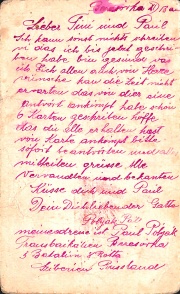 Berasovka 21/18 an
Lieber Tini und Paul
Ich kann sonst nichts schreiben
wi das ich bis jetzt geschri
ben habe bin gesund was
ich Dich allen auch von Herze
wünsche kan die Zeit nicht
erwarten das von dier eine
antwort ankimpt habe schon
6 Karten geschriben hoffe
das du die erhalten hast
von Karte ankimpt bitte
sofort beantworten und
mitteilen grüsse alle
Verwandten und bekanten
Küsse dich und Paul
Dein Dichliebender Gatte
Polyak Pál
meine adresse ist Paul Polyak
Berasovka
3 Batalion 8 Rotta
Siberien Russland